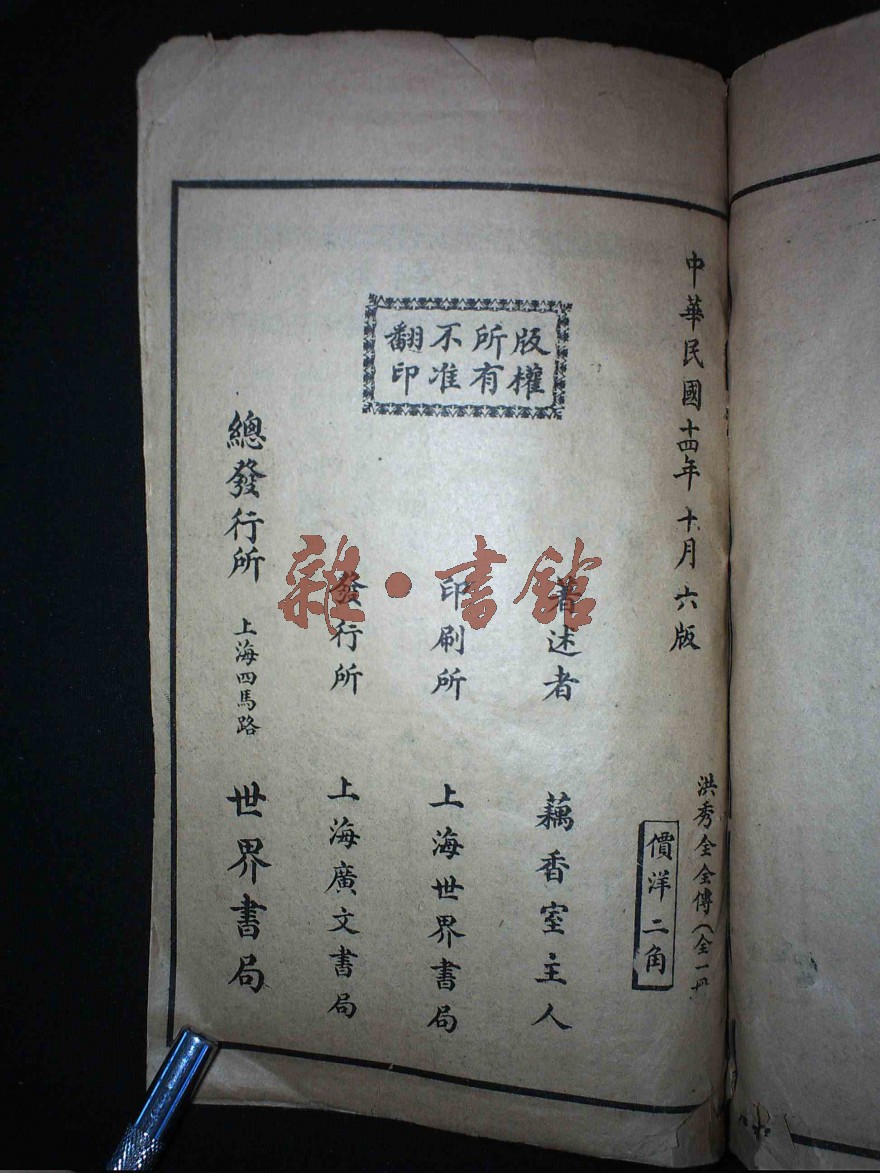 中華民國十四年十月六版
洪秀全全傳(全一冊
價洋二角
版權
所有
不准
翻印
著述者 藕香室主人
印刷所 上海世界書局
發行所 上海廣文書局
總發行所 上海四馬路 世界書局
雜·書館